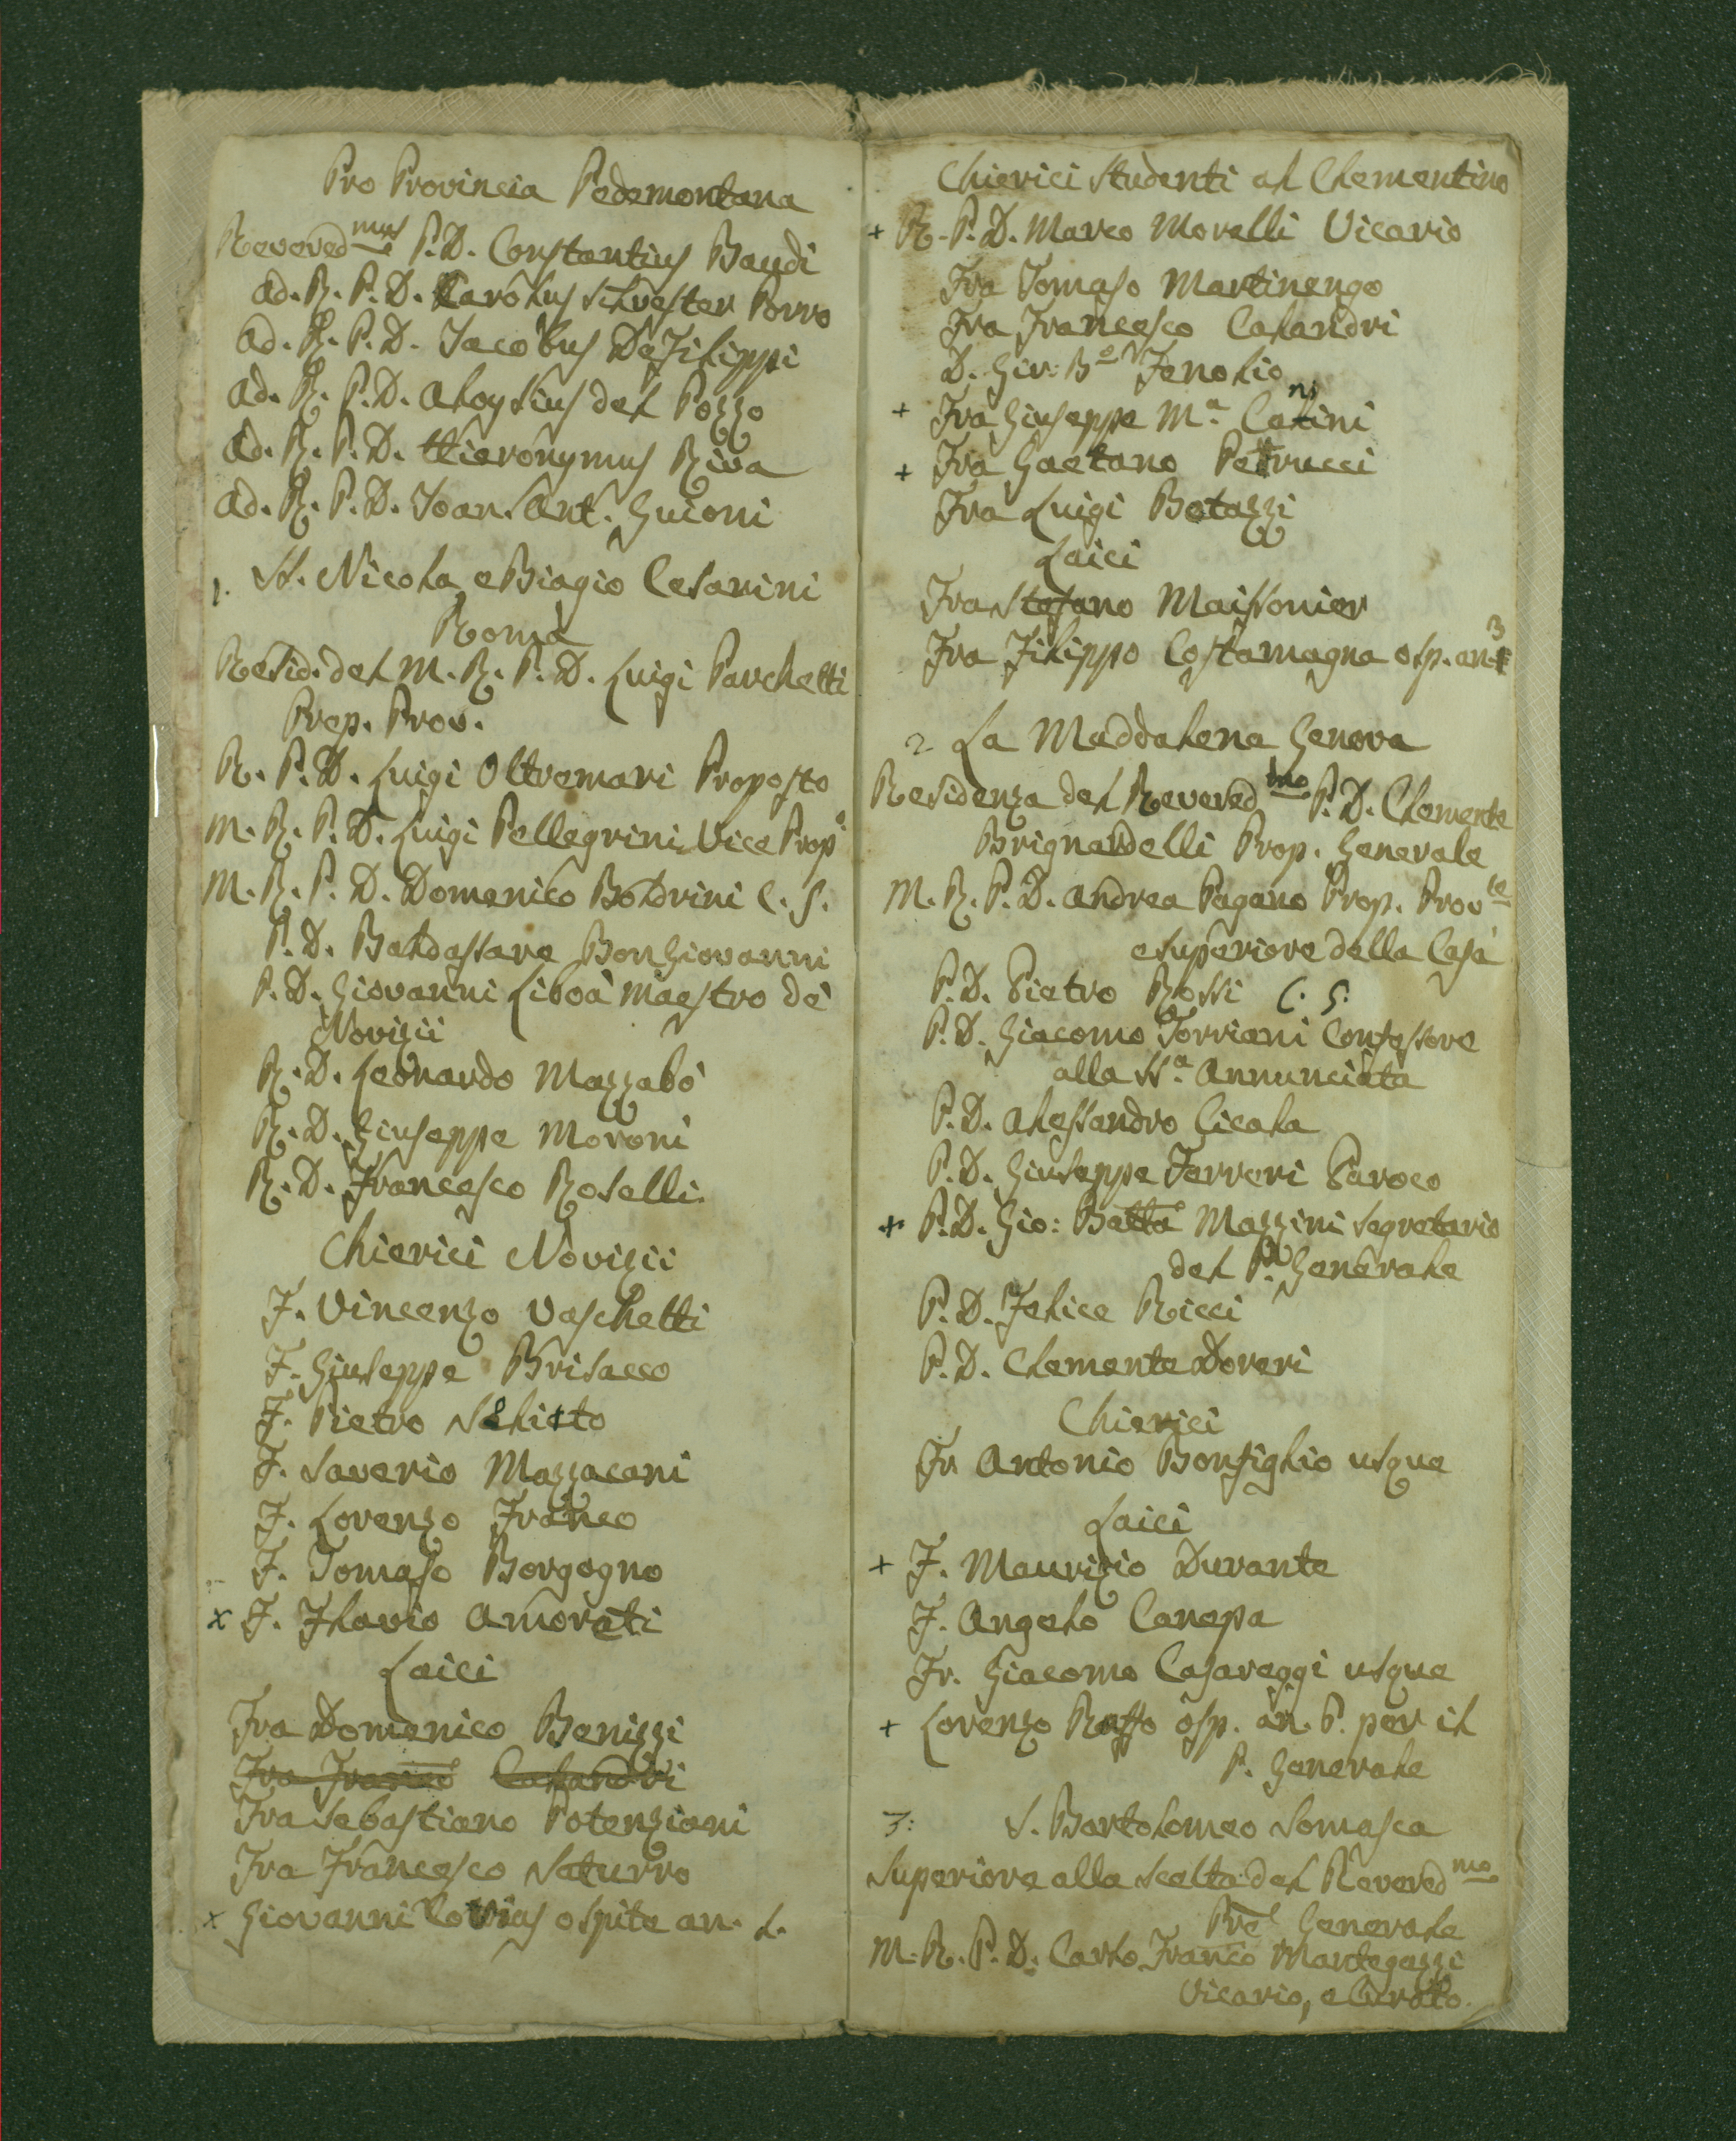 Pro Provincia Pedemontana
Revered.mus P. D. Constantius Baudi
Ad. R. P. D. Carolus Silvester Porro
Ad. R. P. D. Jacobus De Filippi
Ad. R. P. D. Aloysius del Pozzo
Ad. R. P. D. Hieronymus Riva
Ad. R. P. D. Joan. Ant. Guioni
1. SS. Nicola, e Biagio Cesarini
Roma
Resid. del M. R. P. D. Luigi Parchetti
Prep. Prov.
R. P. D. Luigi Oltremari Proposto
M. R. P. D. Luigi Pellegrini Vice Prop.o
M. R. P. D. Domenico Boldrini C. S.
P. D. Baldassare Bongiovanni
P. D. Giovanni Liboà Maestro de'
Novizii
R. D. Leonardo Mazzabò
R. D. Giuseppe Moroni
R. D. Francesco Roselli
Chierici Novizii
F. Vincenzo Vaschetti
F. Giuseppe Brisacco
F. Pietro
F. Saverio Mazzacani
F. Lorenzo Franco
F. Tomaso Borgogno
x F. Flavio Amorati
Laici
Fra Domenico Benizzi
Fra Franco Calandri
Fra Sebastiano Potenziani
Fra Francesco Saturro
x Giovanni ospite an. L.
Chierici Studenti al Clementino
+ R. P. D. Marco Morelli Vicario
Fra Tomaso Martinengo
Fra Francesco Calandri
D. Gio: B.a Fenolio
+ Fra Giuseppe M.a
+ Fra Gaetano Petrucci
Fra Luigi Botazzi
Laici
Fra Stefano Maissonier
Fra Filippo Costamagna osp. an. 3
2 La Maddalena Genova
Residenza del Revered.mo P. D. Clemente
Brignardelli Prop. Generale
M. R. P. D. Andrea Pagano Prop. Prov.le
e Superiore della Casa
P. D. Pietro Rossi C. S.
P. D. Giacomo Torriani Confessore
alla SS.a Annunciata
P. D. Alessandro Cicala
P. D. Giuseppe Ferreri Paroco
+ P. D. Gio: Batta Mazzini Segretario
del P. Generale
P. D. Felice Ricci
P. D. Clemente Doveri
Chierici
Fr. Antonio Bonfiglio usque
Laici
+ F. Maurizio Durante
F. Angelo Canepa
Fr. Giacomo Casareggi usque
+ Lorenzo Raffo osp. an. P. per il
P. Generale
3: S. Bartolomeo Somasca
Superiore alla scelta del Revered.mo
Pre Generale
M. R. P. D. Carlo Franco Mantegazzi
Vicario, e Curato.